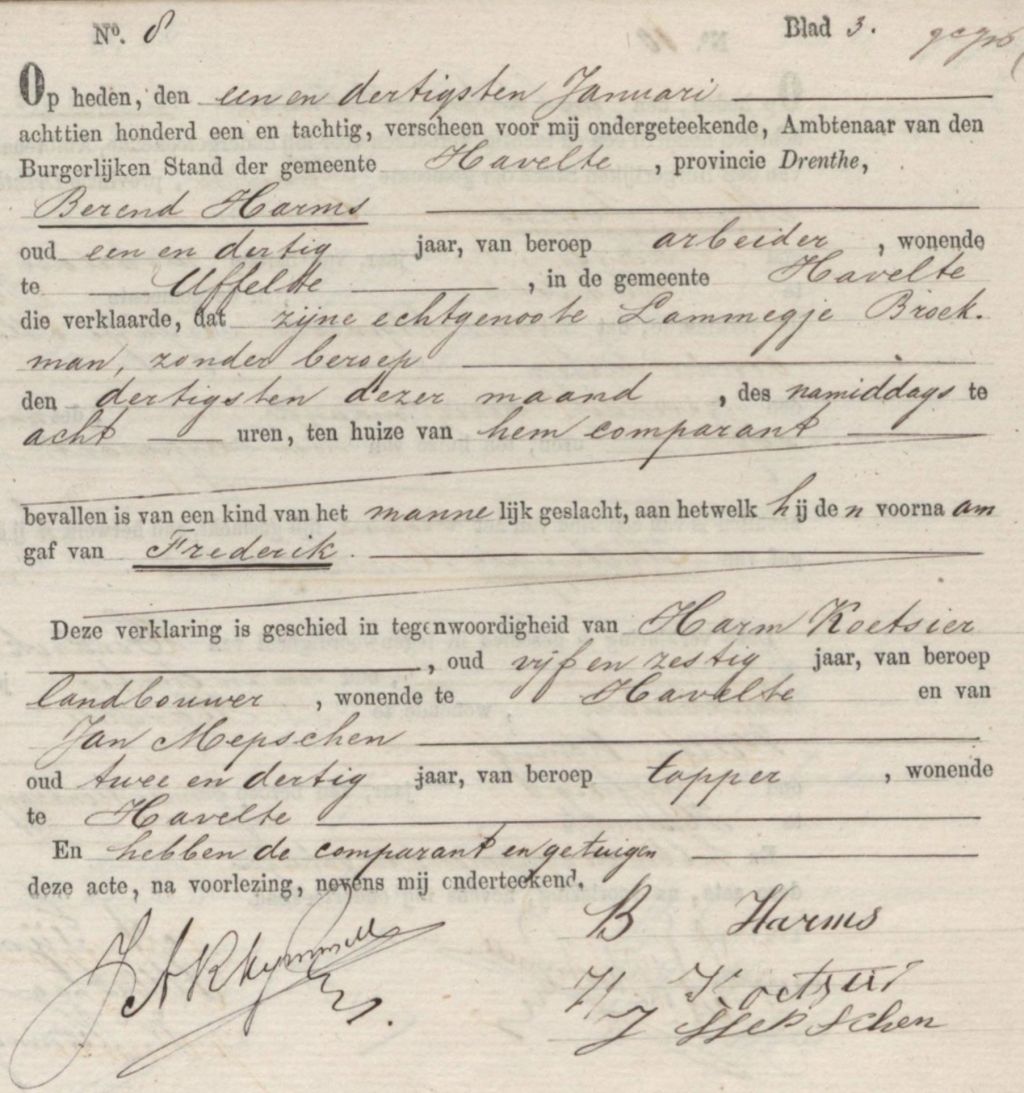 Nº. 8 Blad 3.
Op heden, den een en dertigsten Januari
achttien honderd een en tachtig, verscheen voor mij ondergeteekende, Ambtenaar van den
Burgerlijken Stand der gemeente Havelte, provincie Drenthe,
Berend Harms
oud een en dertig jaar, van beroep arbeider, wonende
te Uffelte, in de gemeente Havelte
die verklaarde, dat zijne echtgenoote Lammegje Broek-
man, zonder beroep
den dertigsten dezer maand, des namiddags te
acht uren, ten huize van hem comparant
bevallen is van een kind van het mannelijk geslacht, aan hetwelk hij den voornaam
gaf van Frederik.
Deze verklaring is geschied in tegenwoordigheid van Harm Koetsier
, oud vijf en zestig jaar, van beroep
landbouwer, wonende te Havelte en van
Jan Mepschen
oud twee en dertig jaar, van beroep tapper, wonende
te Havelte
En hebben de comparant en getuigen
deze acte, na voorlezing, nevens mij onderteekend.
B Harms
H Koetsier
J Mepschen